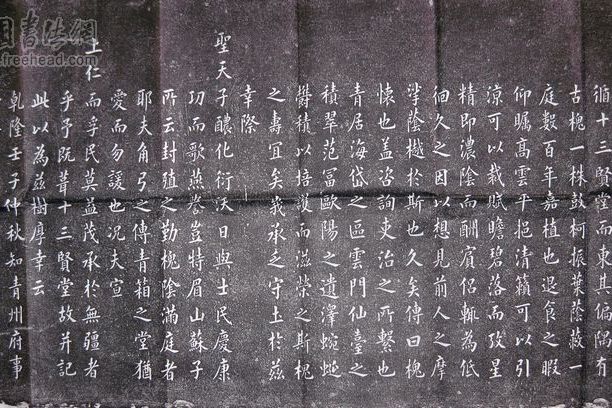 循十三賢堂而東其偏隅有
古槐一株鼓柯振葉蔭蔽一
庭數百年嘉植也退食之暇
仰矚高雲平挹清籟可以引
涼可以裁賦瞻碧落而攷星
精即濃陰而酬賓侶輒為低
徊久之因以想見前人之摩
挲蔭樾於斯也久矣傳曰槐
懷也盖咨詢吏治之所繫也
青居海岱之區雲門仙臺之
積翠范富歐陽之遺澤蜿蜒
欝積以培護而滋榮之斯槐
之壽宜矣我承乏守土於茲
幸際
聖天子醲化衍沃日與士民慶康
功而歌燕譽豈特眉山蘇子
所云封殖之勤槐陰滿庭者
耶夫角弓之傳青箱之堂猶
愛而勿諼也况夫宣
上仁而孚民莫益茂承於無疆者
乎予既葺十三賢堂故并記
此以為茲樹厚幸云
乾隆壬子仲秋知青州府事
freehead.com